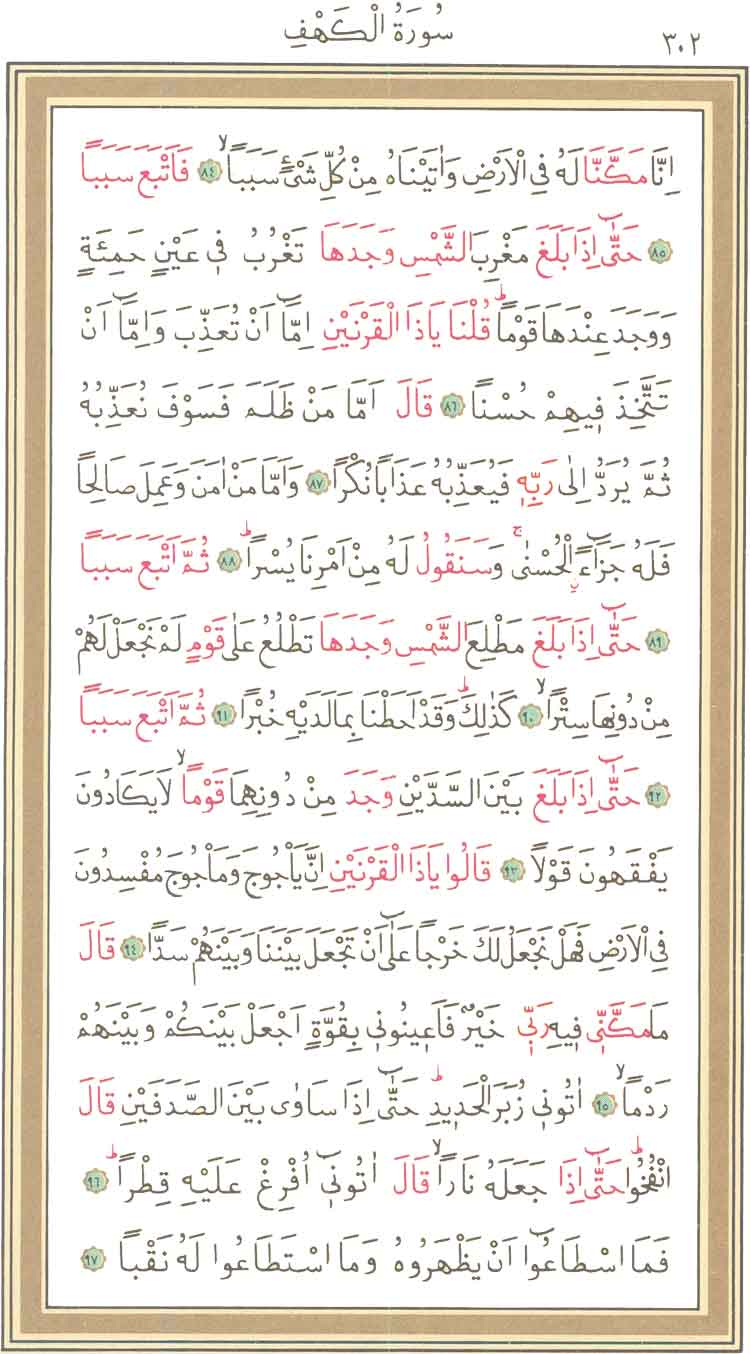 سُورَةُ الْكَهْفِ
٣٠٢
اِنَّا مَكَّنَّا لَهُ فِي الْاَرْضِ وَاٰتَيْنَاهُ مِنْ كُلِّ شَيْءٍ سَبَباًۙ ٨٤ فَاَتْبَعَ سَبَباً
٨٥ حَتّٰٓى اِذَا بَلَغَ مَغْرِبَ الشَّمْسِ وَجَدَهَا تَغْرُبُ ف۪ي عَيْنٍ حَمِئَةٍ
وَوَجَدَ عِنْدَهَا قَوْماًۜ قُلْنَا يَا ذَا الْقَرْنَيْنِ اِمَّٓا اَنْ تُعَذِّبَ وَاِمَّٓا اَنْ
تَتَّخِذَ ف۪يهِمْ حُسْناً ٨٦ قَالَ اَمَّا مَنْ ظَلَمَ فَسَوْفَ نُعَذِّبُهُ
ثُمَّ يُرَدُّ اِلٰى رَبِّه۪ فَيُعَذِّبُهُ عَذَاباً نُكْراً ٨٧ وَاَمَّا مَنْ اٰمَنَ وَعَمِلَ صَالِحاً
فَلَهُ جَزَٓاءًۨ الْحُسْنٰىۚ وَسَنَقُولُ لَهُ مِنْ اَمْرِنَا يُسْراًۜ ٨٨ ثُمَّ اَتْبَعَ سَبَباً
٨٩ حَتّٰٓى اِذَا بَلَغَ مَطْلِعَ الشَّمْسِ وَجَدَهَا تَطْلُعُ عَلٰى قَوْمٍ لَمْ نَجْعَلْ لَهُمْ
مِنْ دُونِهَا سِتْراًۙ ٩٠ كَذٰلِكَۜ وَقَدْ اَحَطْنَا بِمَا لَدَيْهِ خُبْراً ٩١ ثُمَّ اَتْبَعَ سَبَباً
٩٢ حَتّٰٓى اِذَا بَلَغَ بَيْنَ السَّدَّيْنِ وَجَدَ مِنْ دُونِهِمَا قَوْماًۙ لَا يَكَادُونَ
يَفْقَهُونَ قَوْلاً ٩٣ قَالُوا يَا ذَا الْقَرْنَيْنِ اِنَّ يَأْجُوجَ وَمَأْجُوجَ مُفْسِدُونَ
فِي الْاَرْضِ فَهَلْ نَجْعَلُ لَكَ خَرْجاً عَلٰٓى اَنْ تَجْعَلَ بَيْنَنَا وَبَيْنَهُمْ سَداًّ ٩٤ قَالَ
مَا مَكَّنّ۪ي ف۪يهِ رَبّ۪ي خَيْرٌ فَاَع۪ينُون۪ي بِقُوَّةٍ اَجْعَلْ بَيْنَكُمْ وَبَيْنَهُمْ
رَدْماًۙ ٩٥ اٰتُون۪ي زُبَرَ الْحَد۪يدِۜ حَتّٰٓى اِذَا سَاوٰى بَيْنَ الصَّدَفَيْنِ قَالَ
انْفُخُواۜ حَتّٰٓى اِذَا جَعَلَهُ نَاراًۙ قَالَ اٰتُون۪ٓي اُفْرِغْ عَلَيْهِ قِطْراًۜ ٩٦
فَمَا اسْطَاعُٓوا اَنْ يَظْهَرُوهُ وَمَا اسْتَطَاعُوا لَهُ نَقْباً ٩٧